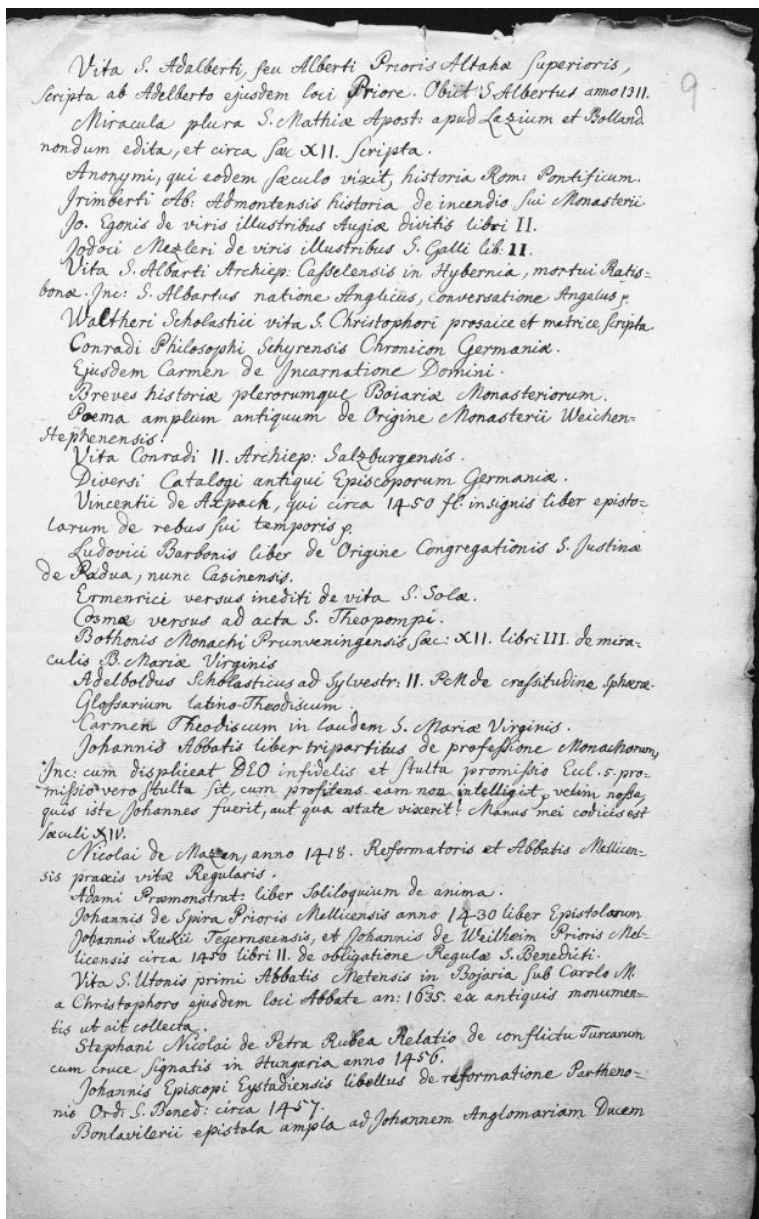 Vita S. Adalberti, seu Alberti Prioris Altahæ Superioris,
scripta ab Adelberto ejusdem loci Priore. Obiit S Albertus anno 1311.
9
Miracula plura S. Mathiæ Apost: apud Lazium et Bolland
nondum edita, et circa sæc XII. scripta.
Anonymi, qui eodem sæculo vixit, historia Rom: Pontificum.
Irimberti Ab: Admontensis historia de incendio sui Monasterii
Jo. Egonis de viris illustribus Augiæ divitis libri II.
Jodoci Mezleri de viris illustribus S. Galli lib: II.
Vita S. Albarti Archiep: Casselensis in Hybernia, mortui Ratis=
bonæ. Inc: S. Albartus natione Anglicus, conversatione Angelus
Waltheri Scholastici vita S. Christophori prosaice et metrice scripta.
Conradi Philosophi Schyrensis Chronicon Germaniæ.
Ejusdem Carmen de Incarnatione Domini.
Breves historiæ plerorumque Boiariæ Monasteriorum.
Poema amplum antiquum de Origine Monasterii Weichen=
stephenensis.
Vita Conradi II. Archiep: Salzburgensis.
Diversi Catalogi antiqui Episcoporum Germaniæ.
Vincentii de Axpach, qui circa 1450 fl. insignis liber episto=
larum de rebus sui temporis
Ludovici Barbonis liber de Origine Congregationis S. Justinæ
de Padua, nunc Casinensis.
Ermenrici versus inediti de vita S. Solæ.
Cosmæ versus ad acta S. Theopompi.
Bothonis Monachi Prunveningensis sæc: XII. libri III. de mira=
culis B. Mariæ Virginis
Adelboldus Scholasticus ad Sylvestr: II. PM de crassitudine Sphæræ.
Glossarium latino-Theodiscum.
Carmen Theodiscum in laudem S. Mariæ Virginis.
Johannis Abbatis liber tripartitus de professione Monachorum,
Inc: cum displiceat DEO infidelis et stulta promissio Eccl. 5. pro=
missio vero stulta sit, cum profitens eam non intelligit, velim nosse,
quis iste Johannes fuerit, aut qua ætate vixerit? Manus mei codicis est
sæculi XIV.
Nicolai de Mazen, anno 1418. Reformatoris et Abbatis Mellicen=
sis praxis vitæ Regularis.
Adami Præmonstrat: liber Soliloquium de anima.
Johannis de Spira Prioris Mellicensis anno 1430 liber Epistolarum
Johannis Kukii Tegernseensis, et Johannis de Weilheim Prioris Mel=
licensis circa 1450 libri II. de obligatione Regulæ S. Benedicti.
Vita S. Utonis primi Abbatis Metensis in Bojaria sub Carolo M.
a Christophoro ejusdem loci Abbate an: 1635. ex antiquis monumen=
tis ut ait collecta.
Stephani Nicolai de Petra Rubea Relatio de conflictu Turcarum
cum cruce signatis in Hungaria anno 1456.
Johannis Episcopi Eystadiensis libellus de reformatione Partheno=
nis Ord: S. Bened: circa 1457.
Bonlavilerii epistola ampla ad Johannem Anglomariam Ducem